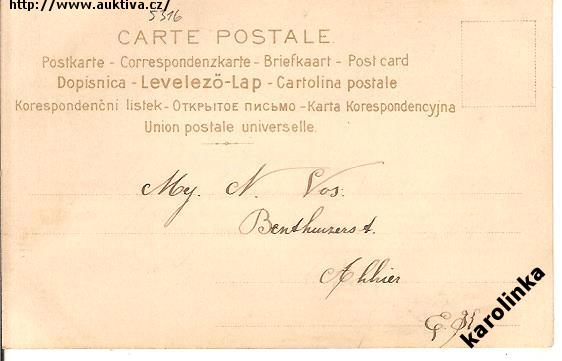 http://www.auktiva.cz/
5316
CARTE POSTALE.
Postkarte - Correspondenzkarte - Briefkaart - Post card
Dopisnica - Levelező-Lap - Cartolina postale
Korespondenční listek - ОТКРЫТОЕ ПИСЬМО - Karta Korespondencyjna
Union postale universelle.
Mej. N. Vos.
Benthuizerst.
Alhier
karolinka